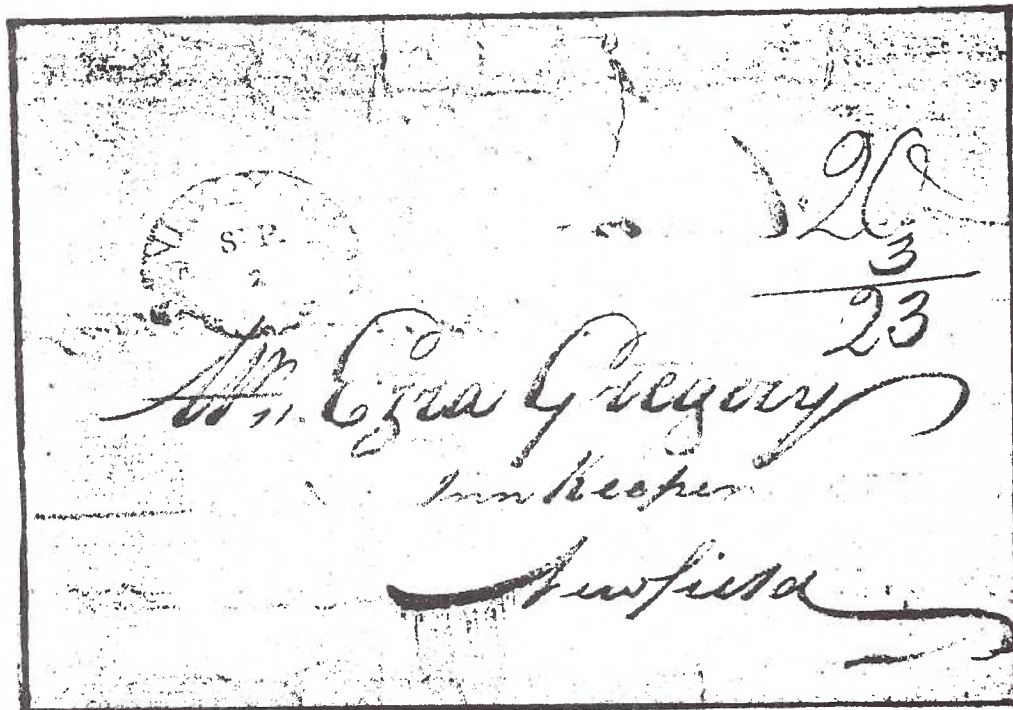 20
3
23
S P.
2
Mr. Ezra Gregory
Inn Keeper
Newfield